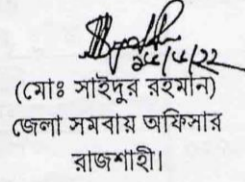 (মোঃ সাইদুর রহমান)
জেলা সমবায় অফিসার
রাজশাহী।